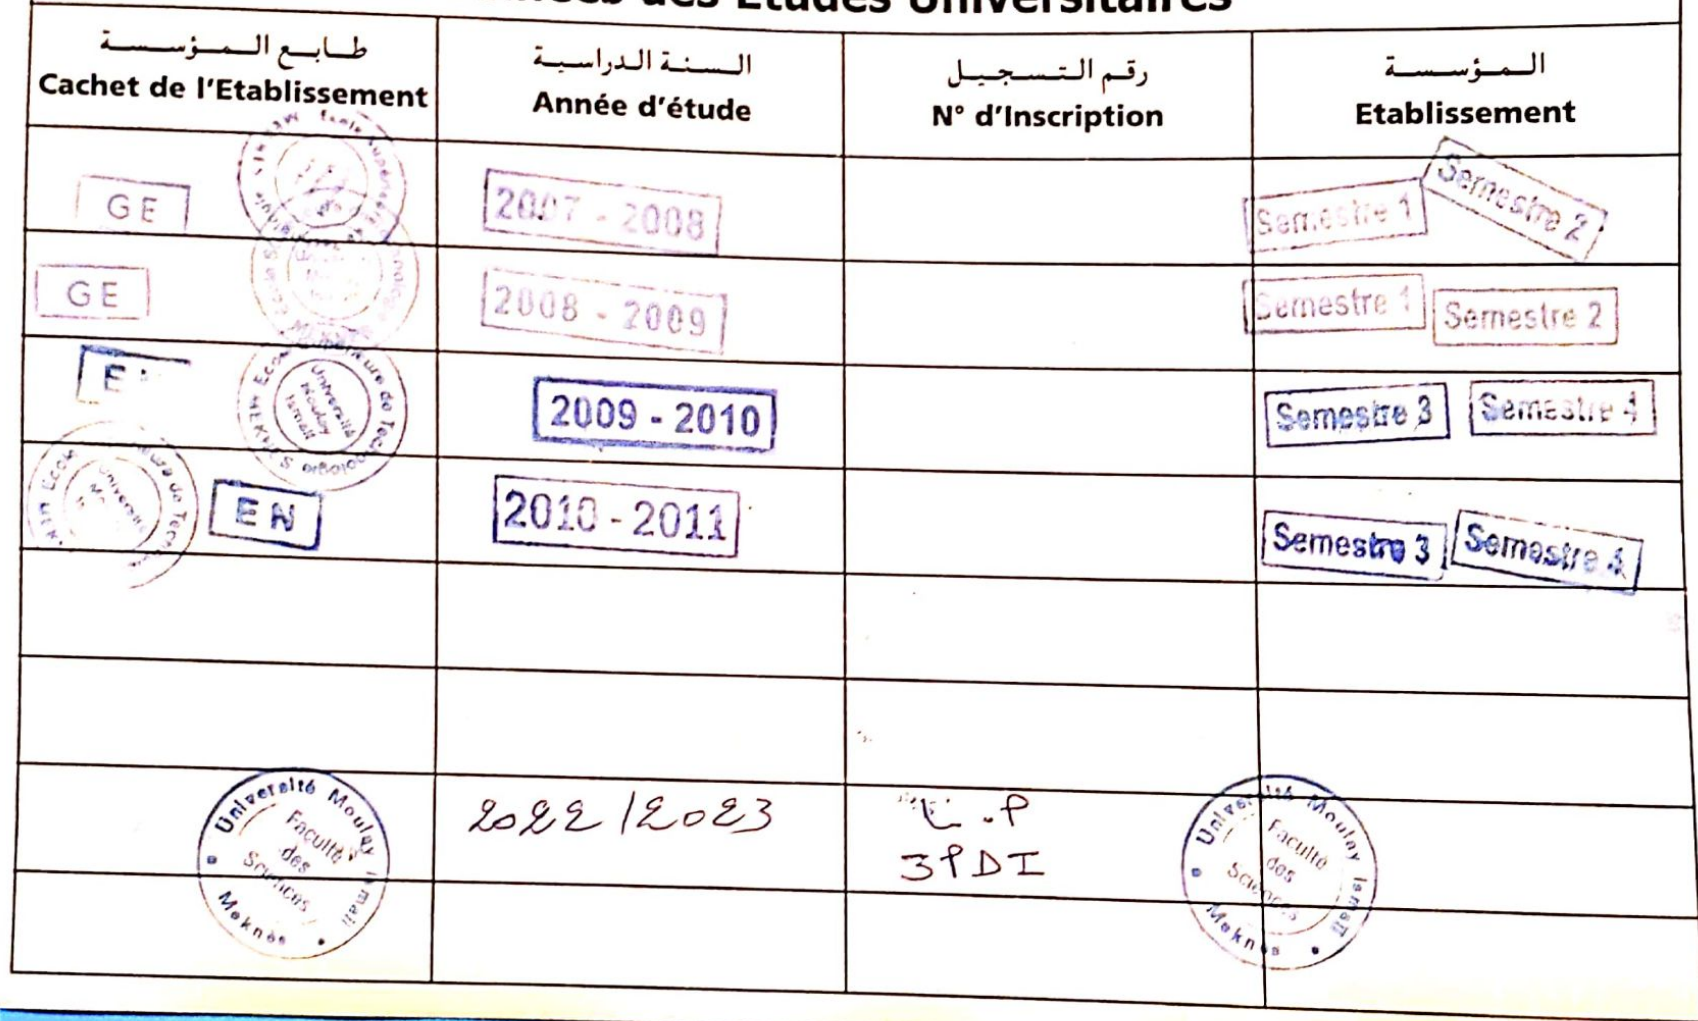 des Etudes Universitaires
طابع المؤسسة
Cachet de l'Etablissement
السنة الدراسية
Année d'étude
رقم التسجيل
N° d'Inscription
المؤسسة
Etablissement
GE
2007 - 2008
Semestre 1
Semestre 2
GE
2008 - 2009
Semestre 1
Semestre 2
E
Université Moulay Ismail
2009 - 2010
Semestre 3
Semestre 4
EN
2010 - 2011
Semestre 3
Semestre 4
Université Moulay Ismail
Faculté
des
Sciences
Meknès
2022/2023
3PDI
Université Moulay Ismail
Faculté
des
Sciences
Meknès